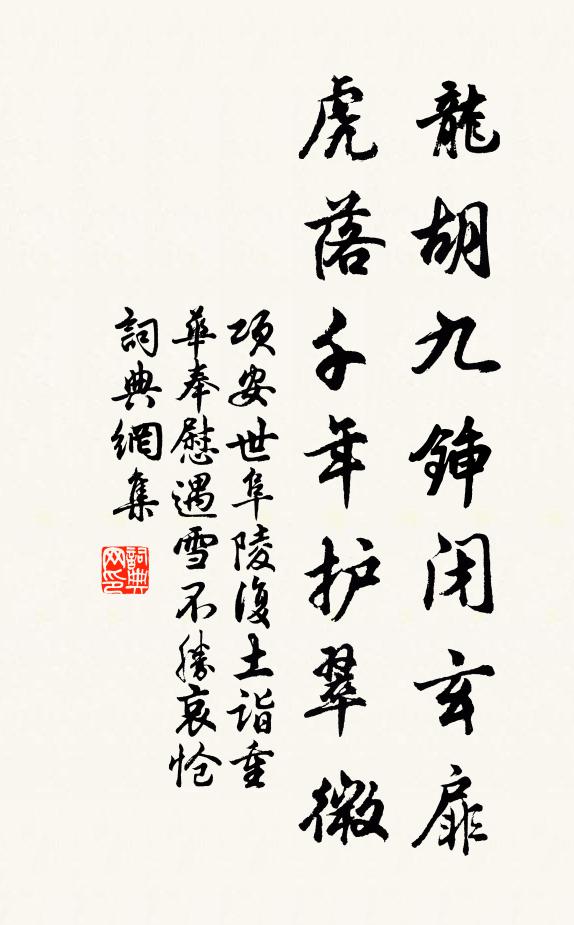 龍胡九鍤闭玄扉
虎落千年护翠微
項安世阜陵復土詣重
華奉慰遇雪不勝哀愴
詞典網集
詞典网印